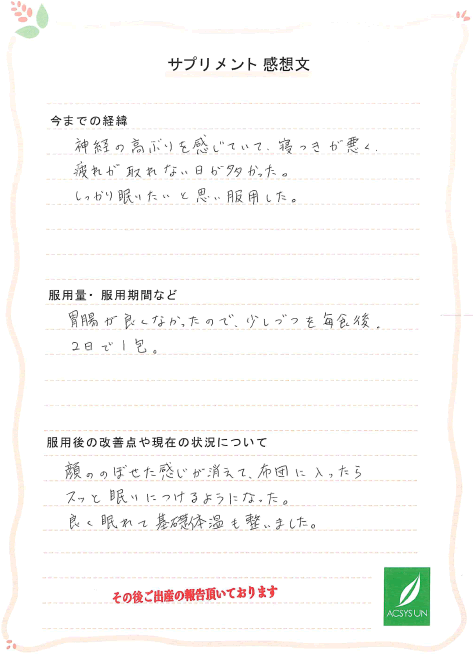 サプリメント 感想文
今までの経緯
神経の高ぶりを感じていて、寝つきが悪く、
疲れが取れない日が多かった。
しっかり眠りたいと思い服用した。
服用量・服用期間など
胃腸が良くなかったので、少しづつを毎食後。
2日で1包。
服用後の改善点や現在の状況について
顔ののぼせた感じが消えて、布団に入ったら
スッと眠りにつけるようになった。
良く眠れて基礎体温も整いました。
その後ご出産の報告頂いております
ACSYSUN